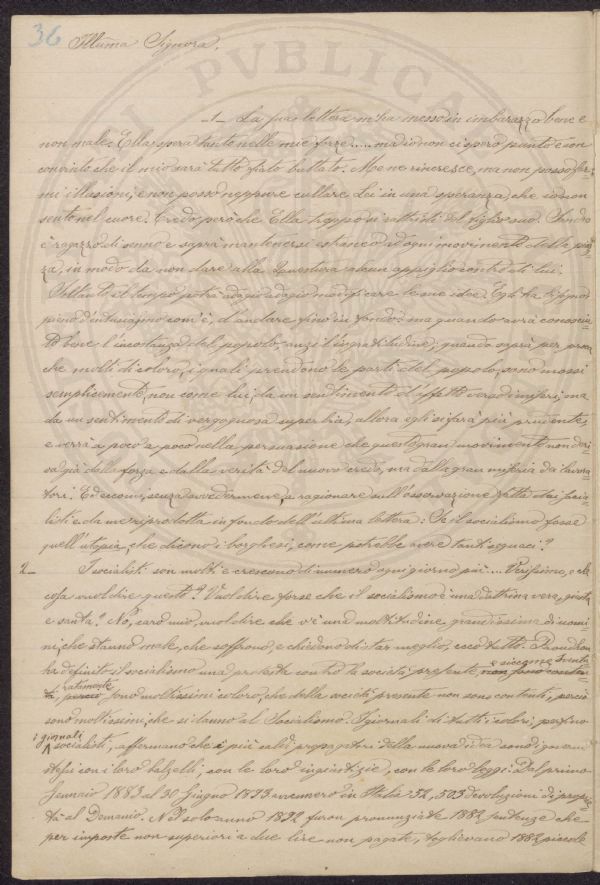 36
Illma Signora,
_1_ La sua lettera m'ha messo in imbarazzo bene e
non male. Ella spera tanto nelle mie forze..... ma io non ci spero punto e son
convinto che il mio sarà tutto fiato buttato. Me ne rincresce, ma non posso far-
mi illusioni, e non posso neppure cullare Lei in una speranza, che io non
sento nel cuore. Credo però che Ella troppo si rattristi del figlio suo. Sandro
è ragazzo di senno e saprà mantenersi estraneo ad ogni movimento della piaz-
za, in modo da non dare alla Questura alcun appiglio contro di lui.
Soltanto il tempo potrà adagio adagio modificare le sue idee. Egli ha bisogno
pieno d'entusiasmo com'è, d'andare fino in fondo: ma quando avrà conosciu-
to bene l'incostanza del popolo, anzi l'ingratitudine; quando saprà per prova
che molti di coloro, i quali prendono le parti del popolo, sono mossi
semplicemente, non come lui, da un sentimento d'affetto verso i miseri, ma
da un sentimento di vergognosa superbia, allora egli si farà più prudente,
e verrà a poco a poco nella persuasione che questo gran movimento non deri-
va già dalla forza e dalla verità del nuovo credo, ma dalla gran miseria dei lavora-
tori. Ed eccomi, senza avvedermene, a ragionare sull'osservazione fatta dai socia-
listi e da me riprodotta in fondo dell'ultima lettera: Se il socialismo fosse
quell'utopia, che dicono i borghesi, come potrebbe avere tanti seguaci?
2_ I socialisti son molti e crescono di numero ogni giorno più.... Verissimo, e che
cosa vuol dire questo? Vuol dire forse che il socialismo è una dottrina vera, giusta
e santa? No, caro mio, vuol dire che v'è una moltitudine grandissima di uomi-
ni, che stanno male, che soffrono, e chiedono di star meglio, ecco tutto. Proudhon
ha definito il socialismo una protesta contro la società presente, non sono conten-
e siccome
ti, perciò sono moltissimi coloro, che della società presente non sono contenti, perciò
sono moltissimi, che si danno al Socialismo. I giornali di tutti i colori, perfino
i giornali
socialisti, affermano che i più caldi propagatori della nuova idea sono i governi
stessi con i loro balzelli, con le loro ingiustizie, con le loro leggi. Dal primo
Gennaio 1885 al 30 Giugno 1893 avvennero in Italia 52,503 devoluzioni di proprie-
tà al Demanio. Nel solo anno 1892 furon pronunziate 1882 sentenze che
per imposte non superiori a due lire non pagate, toglievano 1882 piccole